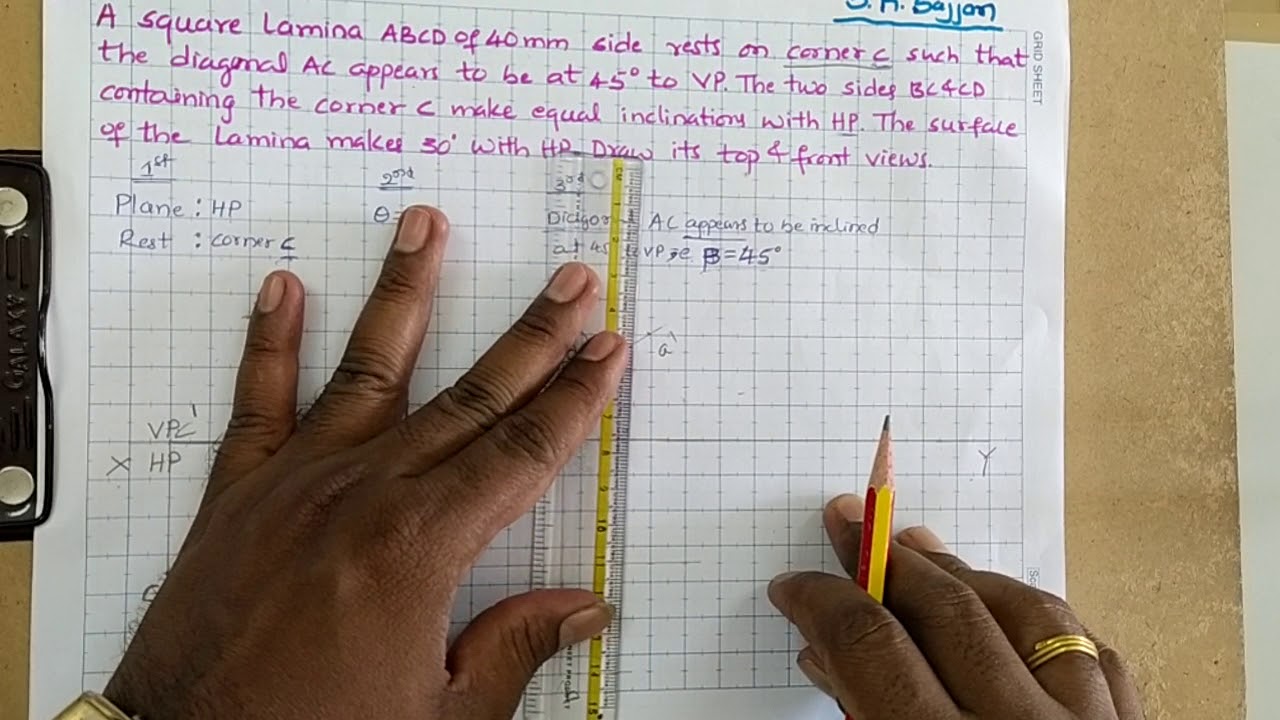 S. H. Bajjon
A square Lamina ABCD of 40mm side rests on corner C such that
the diagonal AC appears to be at 45° to VP. The two sides BC & CD
containing the corner C make equal inclinations with HP. The surface
of the Lamina makes 30° with HP. Draw its top & front views.
1st 2nd 3rd
Plane : HP θ= AC appears to be inclined
Rest : corner C at 45 VP ie β=45°
a'
VP c'
X HP Y
GRID SHEET
GALAXY
CM